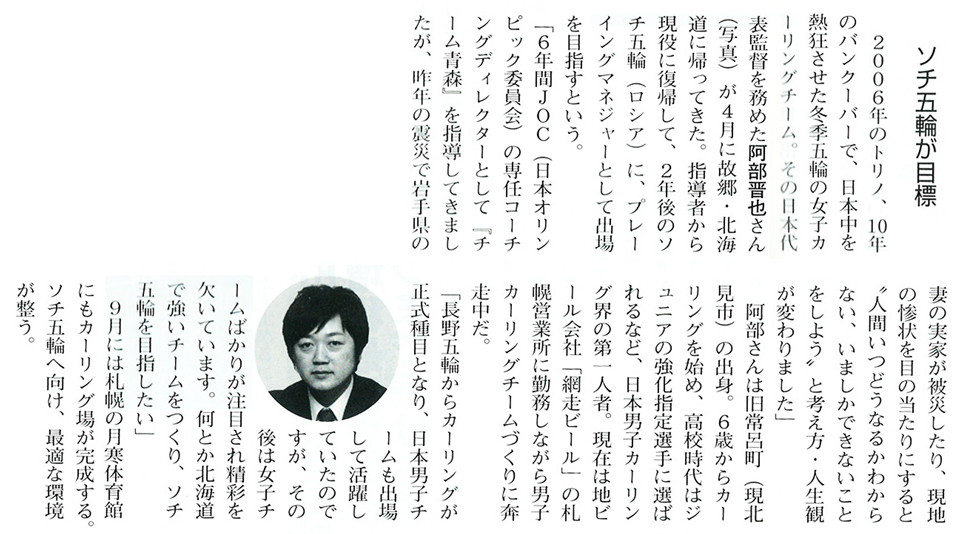 ソチ五輪が目標
２００６年のトリノ、10年
のバンクーバーで、日本中を
熱狂させた冬季五輪の女子カ
ーリングチーム。その日本代
表監督を務めた阿部晋也さん
（写真）が４月に故郷・北海
道に帰ってきた。指導者から
現役に復帰して、２年後のソ
チ五輪（ロシア）に、プレー
イングマネジャーとして出場
を目指すという。
「６年間ＪＯＣ（日本オリン
ピック委員会）の専任コーチ
ングディレクターとして『チ
ーム青森』を指導してきまし
たが、昨年の震災で岩手県の
妻の実家が被災したり、現地
の惨状を目の当たりにすると
〝人間いつどうなるかわから
ない、いましかできないこと
をしよう〟と考え方・人生観
が変わりました」
阿部さんは旧常呂町（現北
見市）の出身。６歳からカー
リングを始め、高校時代はジ
ュニアの強化指定選手に選ば
れるなど、日本男子カーリン
グ界の第一人者。現在は地ビ
ール会社「網走ビール」の札
幌営業所に勤務しながら男子
カーリングチームづくりに奔
走中だ。
「長野五輪からカーリングが
正式種目となり、日本男子チ
ームも出場
して活躍し
ていたので
すが、その
後は女子チ
ームばかりが注目され精彩を
欠いています。何とか北海道
で強いチームをつくり、ソチ
五輪を目指したい」
９月には札幌の月寒体育館
にもカーリング場が完成する。
ソチ五輪へ向け、最適な環境
が整う。